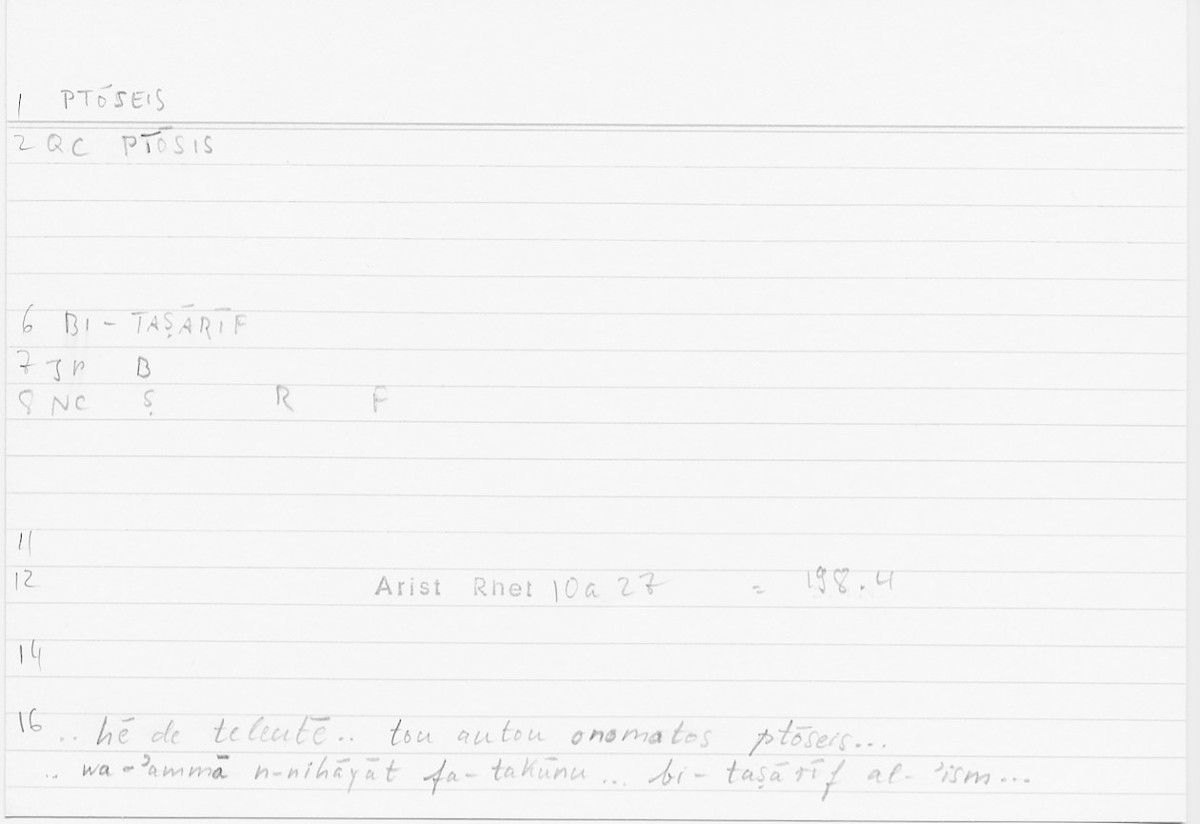 1 PTŌSEIS
2 QC PTŌSIS
6 BI - TAṢĀRĪF
7 JP B
8 NC Ṣ R F
11
12 Arist Rhet 10a 27 = 198.4
14
16 .. hē de teleutē.. tou autou onomatos ptōseis...
.. wa-ʾammā n-nihāyāt fa-takūnu ... bi-taṣārīf al-ʾism...